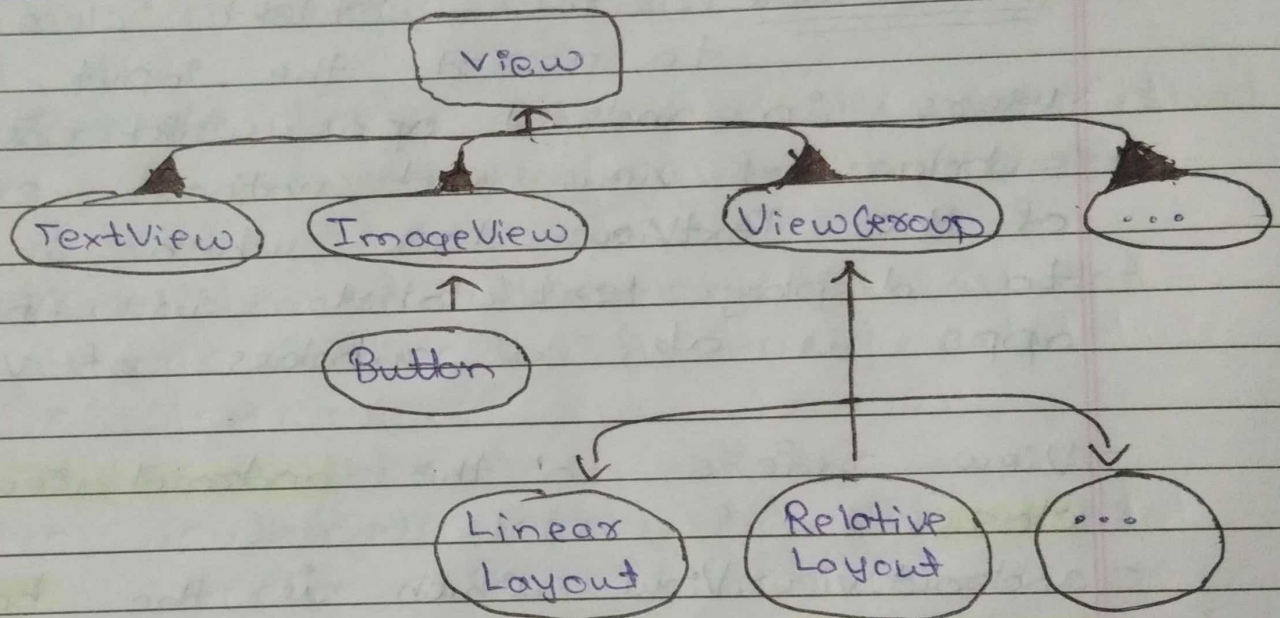 View
TextView
ImageView
ViewGroup
...
Button
Linear
Layout
Relative
Layout
...